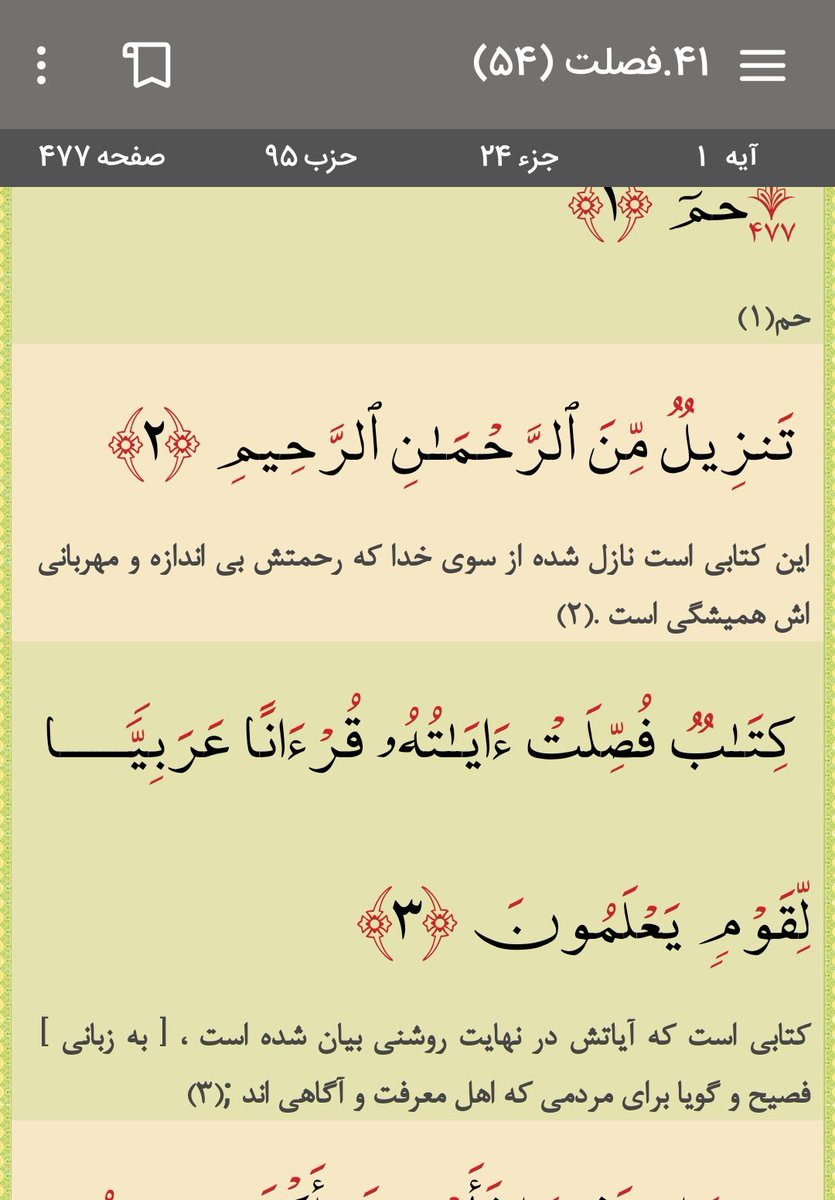 ۴۱.فصلت (۵۴)
آیه ۱ جزء ۲۴ حزب ۹۵ صفحه ۴۷۷
۴۷۷ حمٓ ﴿۱﴾
حم(۱)
تَنزِيلٌ مِّنَ ٱلرَّحْمَـٰنِ ٱلرَّحِيمِ ﴿۲﴾
این کتابی است نازل شده از سوی خدا که رحمتش بی اندازه و مهربانی
اش همیشگی است .(۲)
كِتَـٰبٌ فُصِّلَتْ ءَايَـٰتُهُۥ قُرْءَانًا عَرَبِيًّـــا
لِّقَوْمٍ يَعْلَمُونَ ﴿۳﴾
کتابی است که آیاتش در نهایت روشنی بیان شده است ، [ به زبانی ]
فصیح و گویا برای مردمی که اهل معرفت و آگاهی اند ;(۳)